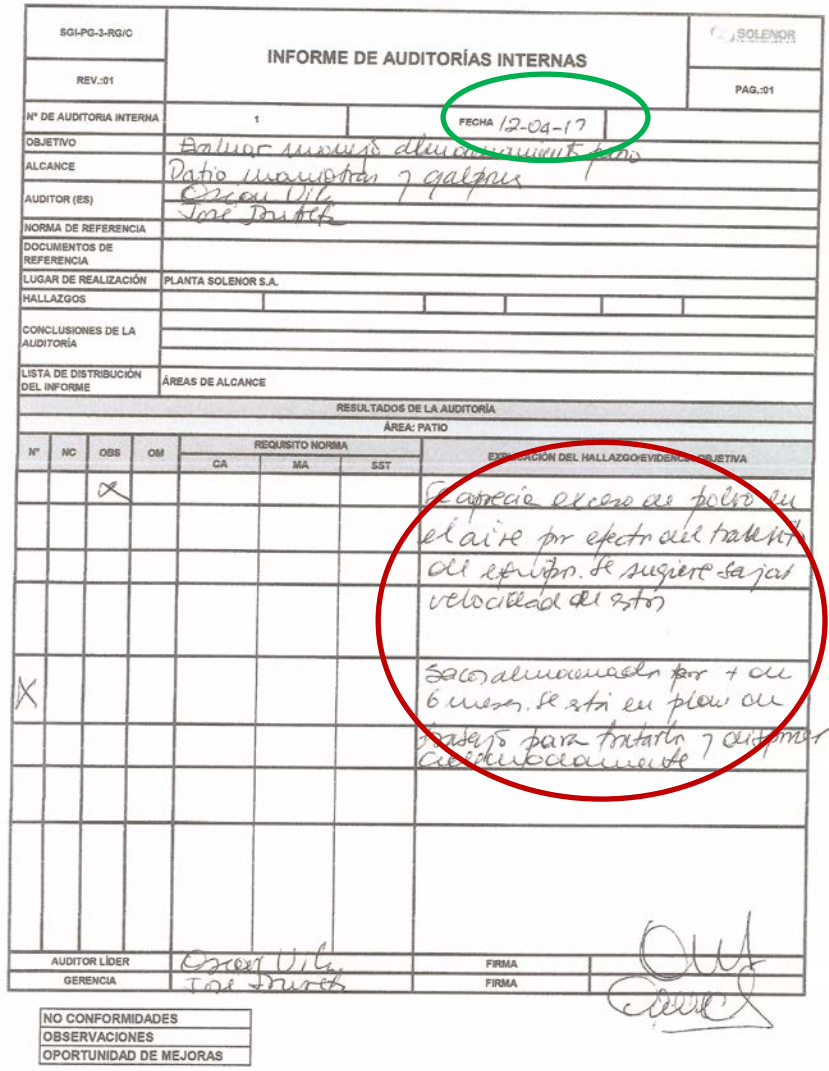 SGI-PG-3-RG/C
INFORME DE AUDITORÍAS INTERNAS
SOLENOR
REV.:01
PAG.:01
N° DE AUDITORIA INTERNA 1 FECHA 12-04-17
OBJETIVO Evaluar manejo almacenamiento
ALCANCE Patio maniobras y galpones
AUDITOR (ES) Oscar
José
NORMA DE REFERENCIA
DOCUMENTOS DE
REFERENCIA
LUGAR DE REALIZACIÓN PLANTA SOLENOR S.A.
HALLAZGOS
CONCLUSIONES DE LA
AUDITORÍA
LISTA DE DISTRIBUCIÓN
DEL INFORME ÁREAS DE ALCANCE
RESULTADOS DE LA AUDITORÍA
ÁREA: PATIO
N° NC OBS OM REQUISITO NORMA EXPLICACIÓN DEL HALLAZGO/EVIDENCIA OBJETIVA
CA MA SST
X Se aprecia exceso de polvo en
el aire por efecto del
de equipo. Se sugiere bajar
velocidad de estos
Sacos almacenados por + de
X 6 meses. Se está en plan de
trabajo para tratarlo y disponer
AUDITOR LÍDER Oscar FIRMA
GERENCIA José FIRMA
NO CONFORMIDADES
OBSERVACIONES
OPORTUNIDAD DE MEJORAS